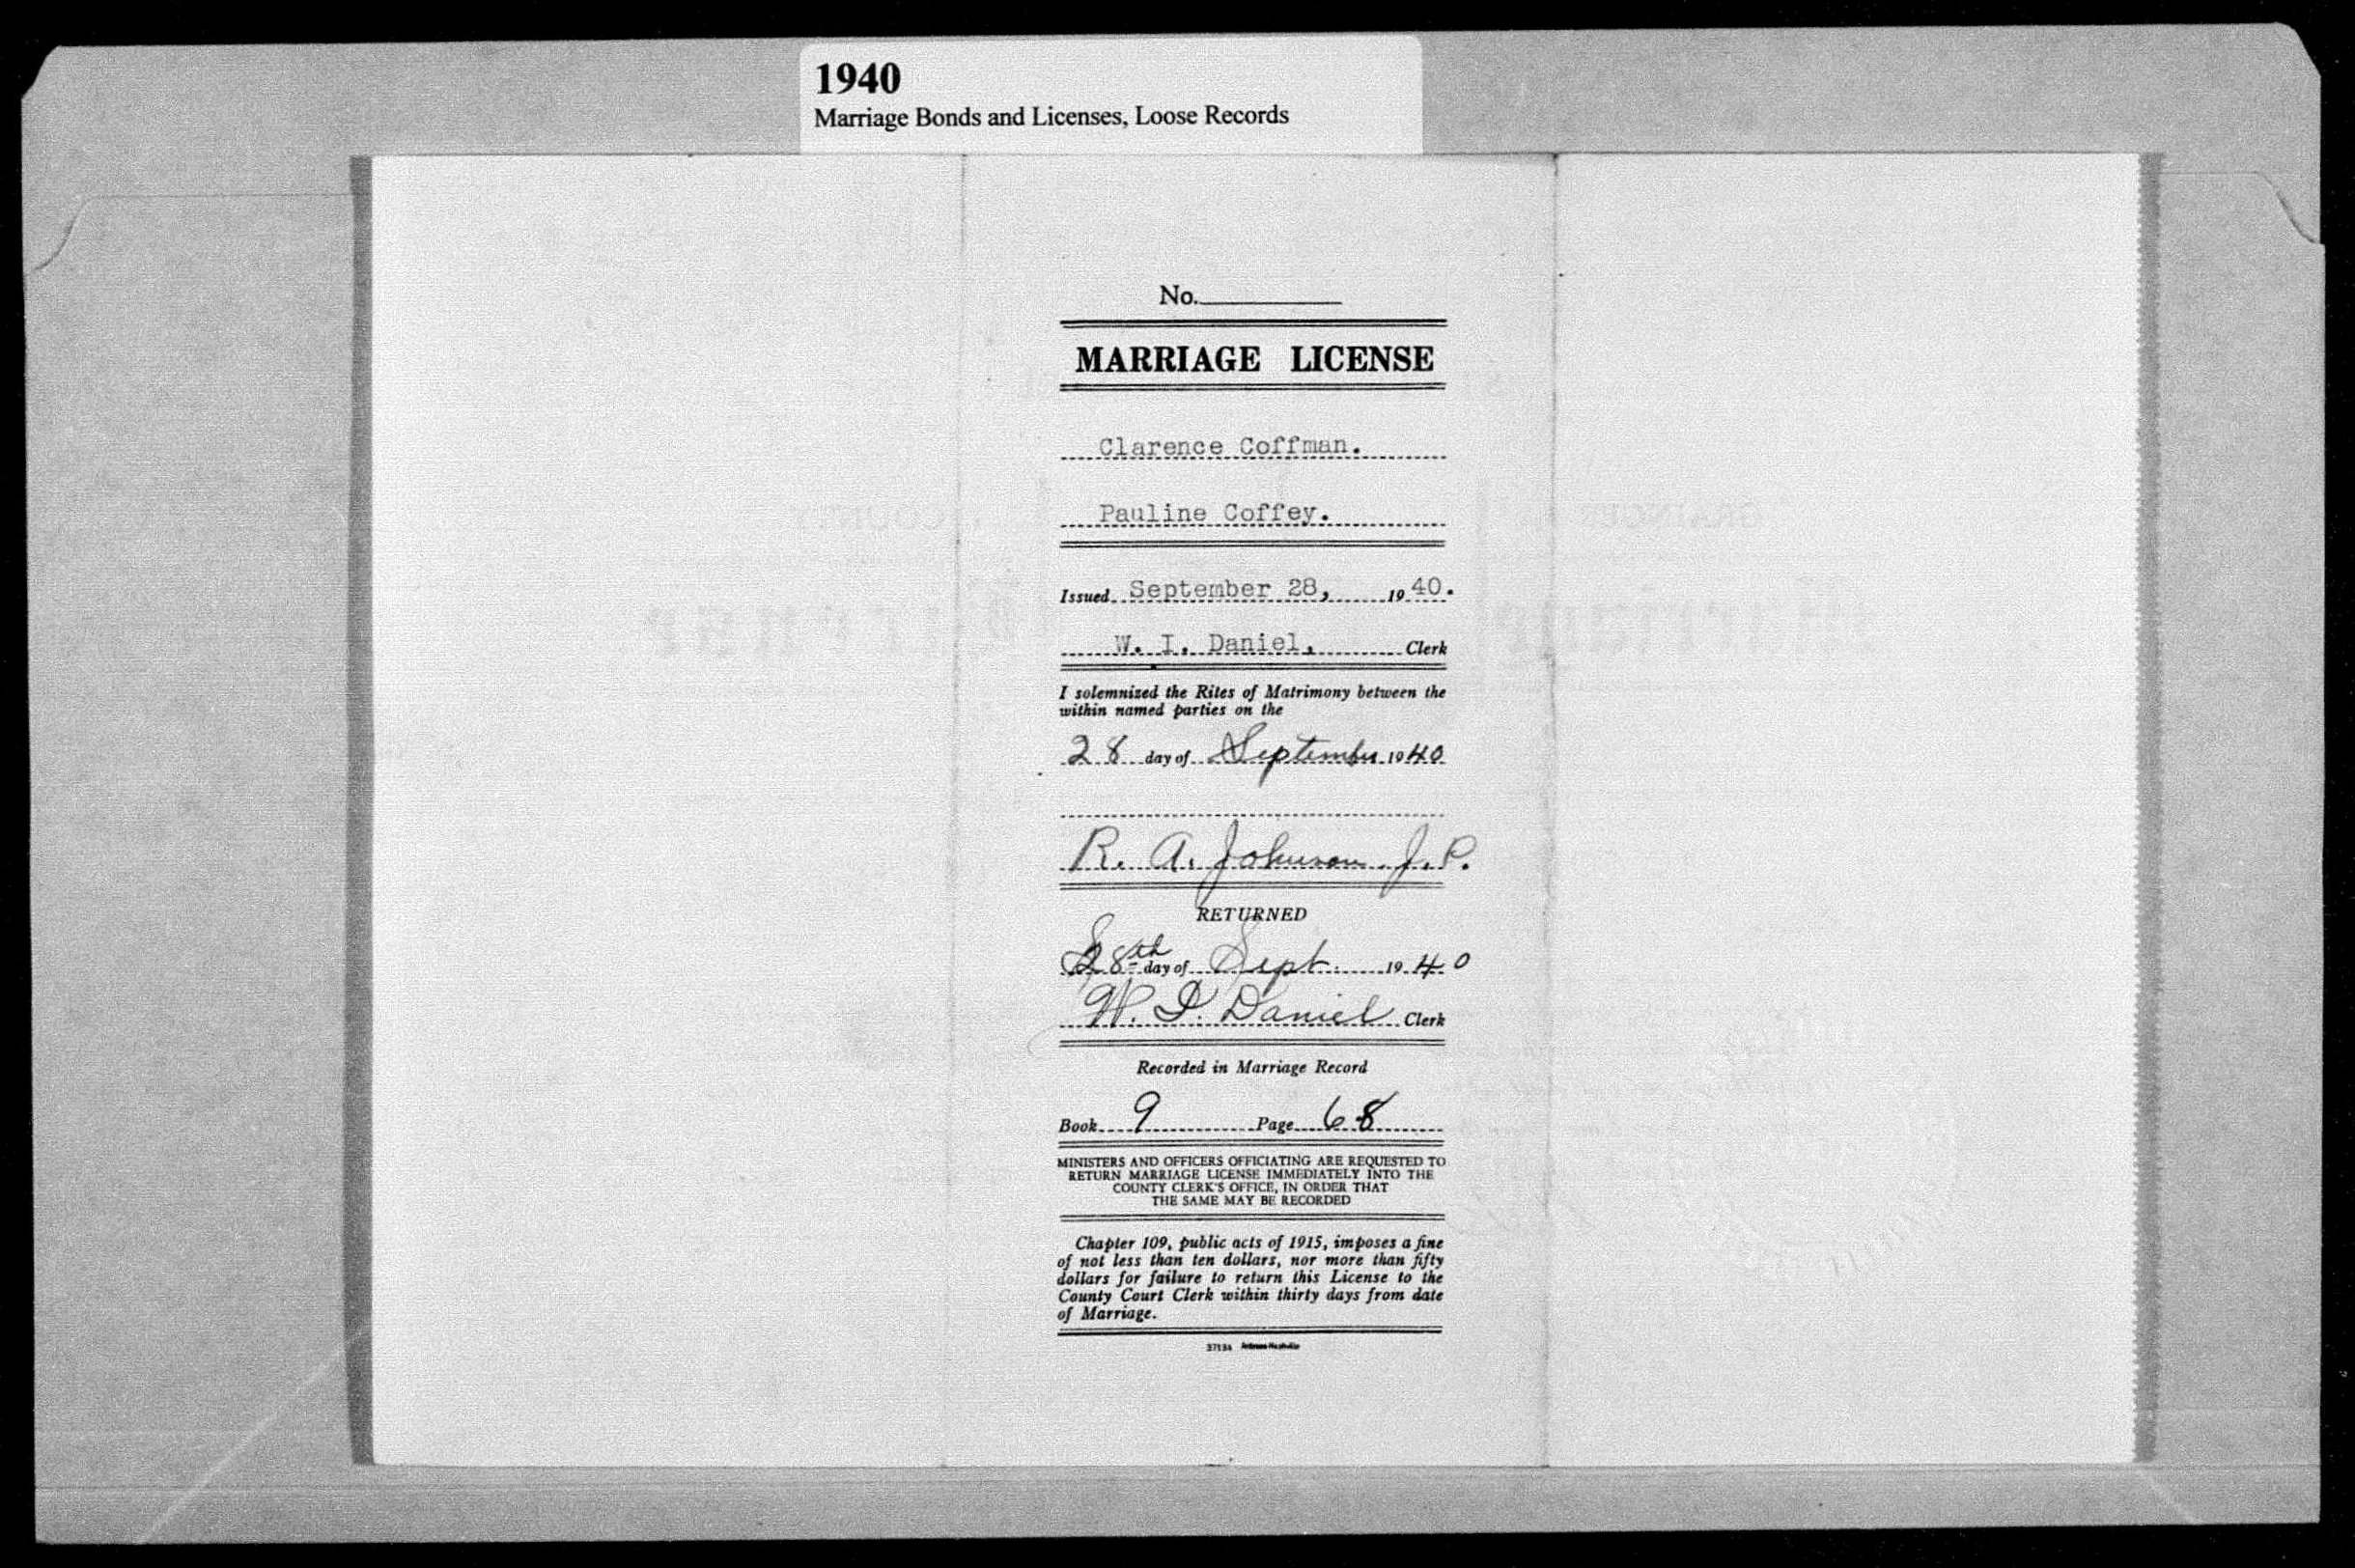 1940
Marriage Bonds and Licenses, Loose Records
No.
MARRIAGE LICENSE
Clarence Coffman.
Pauline Coffey.
Issued September 28, 1940.
W. I. Daniel, Clerk
I solemnized the Rites of Matrimony between the
within named parties on the
28 day of September 1940
R. A. Johnson J. P.
RETURNED
28th day of Sept. 1940
W. I. Daniel Clerk
Recorded in Marriage Record
Book 9 Page 68
MINISTERS AND OFFICERS OFFICIATING ARE REQUESTED TO
RETURN MARRIAGE LICENSE IMMEDIATELY INTO THE
COUNTY CLERK'S OFFICE, IN ORDER THAT
THE SAME MAY BE RECORDED
Chapter 109, public acts of 1915, imposes a fine
of not less than ten dollars, nor more than fifty
dollars for failure to return this License to the
County Court Clerk within thirty days from date
of Marriage.